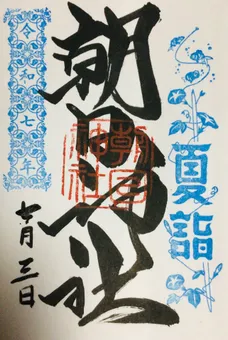 夏詣
朝日神社
朝日
神社
令和七年
七月三日